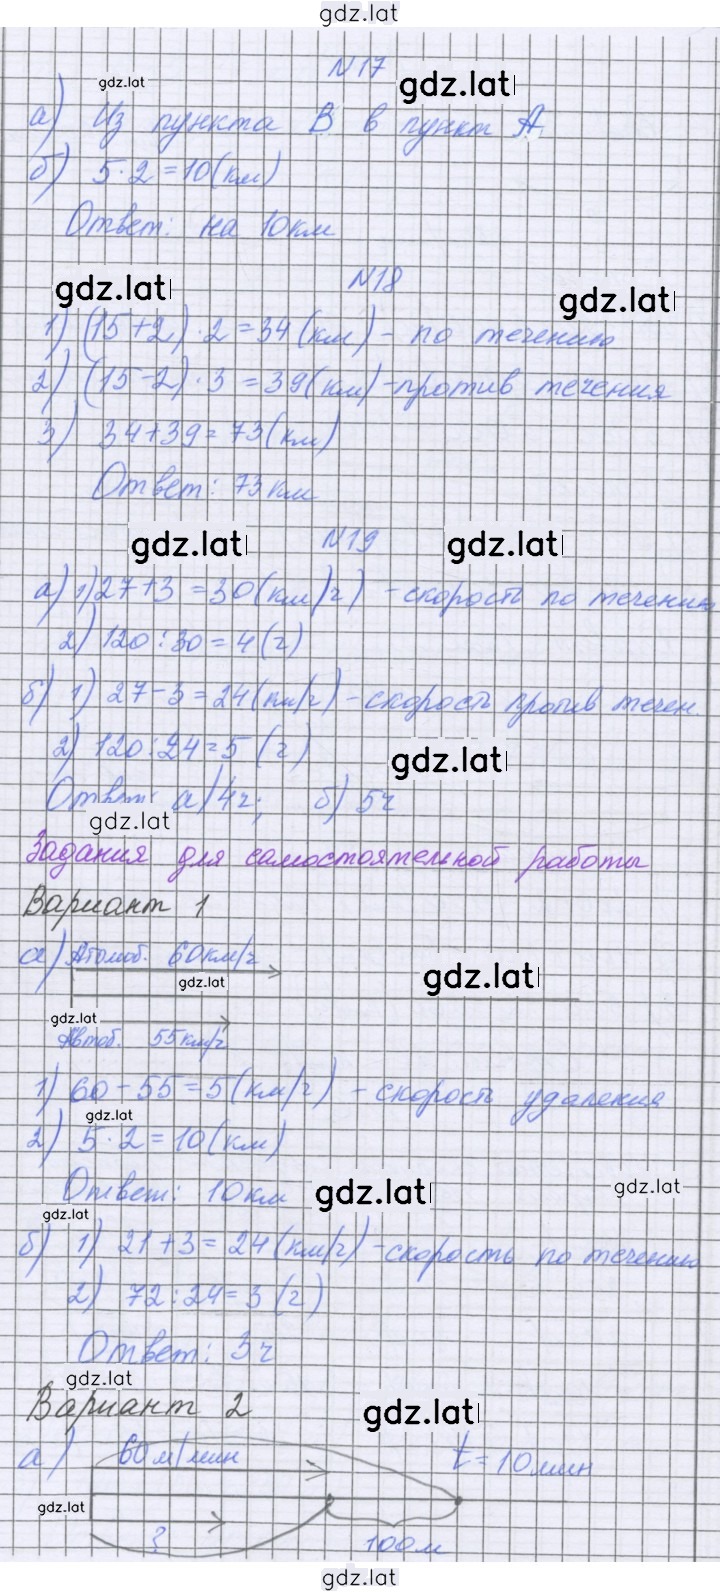 gdz.lat
№17
gdz.lat gdz.lat
а) Из пункта В в пункт А.
б) 5·2=10(км)
Ответ: на 10км
№18
gdz.lat gdz.lat
1) (15+2)·2=34(км)-по течению
2) (15-2)·3=39(км)-против течения
3) 34+39=73(км)
Ответ: 73км
№19
gdz.lat gdz.lat
а) 1)27+3=30(км/ч)-скорость по течению
2) 120:30=4(ч)
б) 1) 27-3=24(км/ч)-скорость против течен
2) 120:24=5(ч)
gdz.lat
Ответ: а)4ч; б)5ч
gdz.lat
Задания для самостоятельной работы
Вариант 1
а) Атомоб. 60км/ч
gdz.lat gdz.lat
gdz.lat
Автоб. 55км/ч
1) 60-55=5(км/ч)-скорость удаления
gdz.lat
2) 5·2=10(км)
Ответ: 10км
gdz.lat gdz.lat
gdz.lat
б) 1) 21+3=24(км/ч)-скорость по течению
2) 72:24=3(ч)
Ответ: 3ч
gdz.lat
Вариант 2
gdz.lat
а) 60м/мин t=10мин
gdz.lat
? 100м
gdz.lat